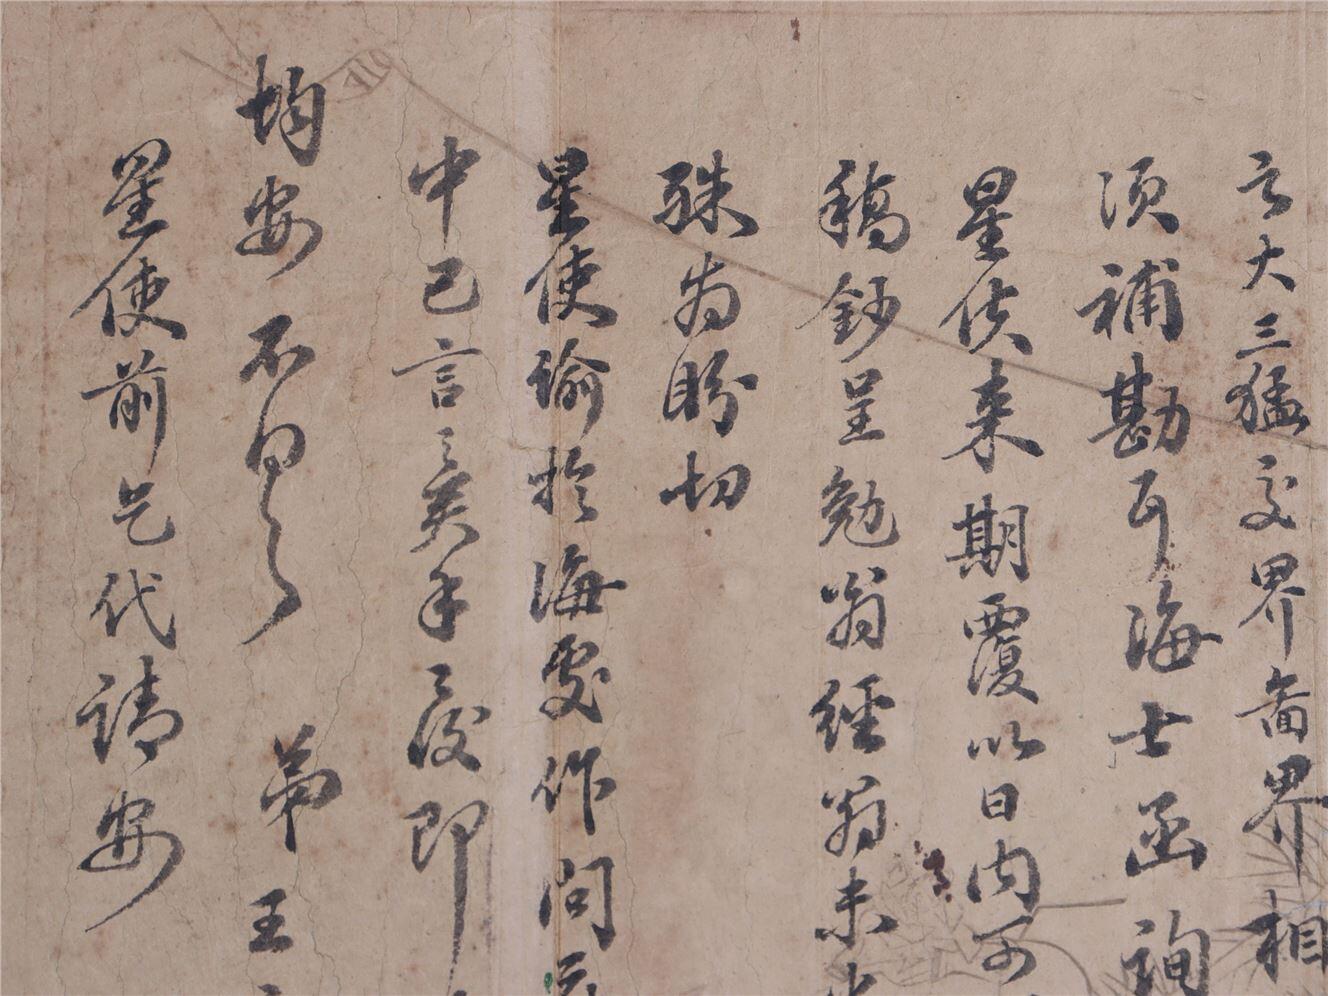 言大三猛交界畨界相
須補勘耳海士函詢
星使來期覆以日内可
稿鈔呈勉翁經翁未
殊为盼切
星使諭於海处作問
中已言之矣手覆即
均安不具 弟王
星使前乞代請安